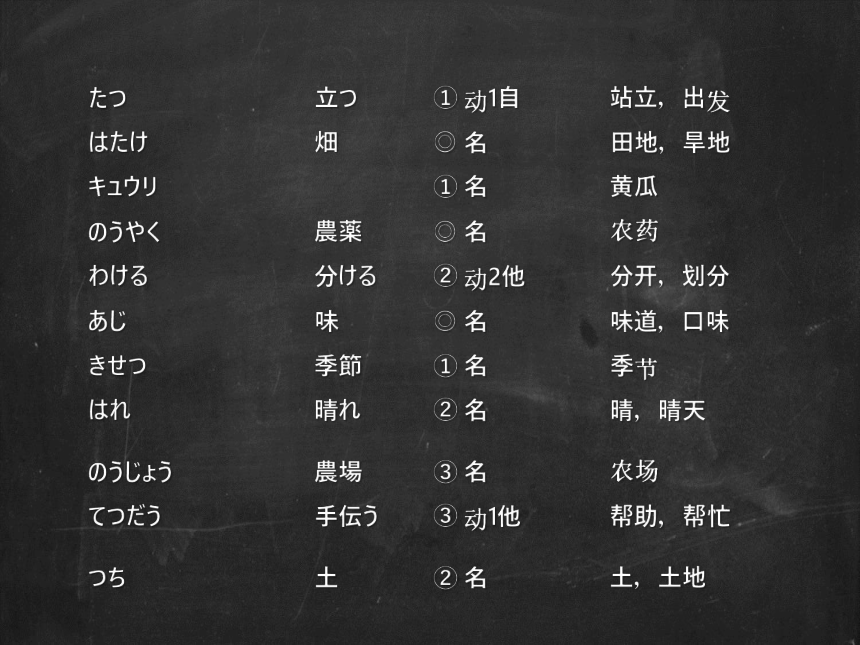 たつ 立つ ① 动1自 站立，出发
はたけ 畑 ◎ 名 田地，旱地
キュウリ ① 名 黄瓜
のうやく 農薬 ◎ 名 农药
わける 分ける ② 动2他 分开，划分
あじ 味 ◎ 名 味道，口味
きせつ 季節 ① 名 季节
はれ 晴れ ② 名 晴，晴天
のうじょう 農場 ③ 名 农场
てつだう 手伝う ③ 动1他 帮助，帮忙
つち 土 ② 名 土，土地